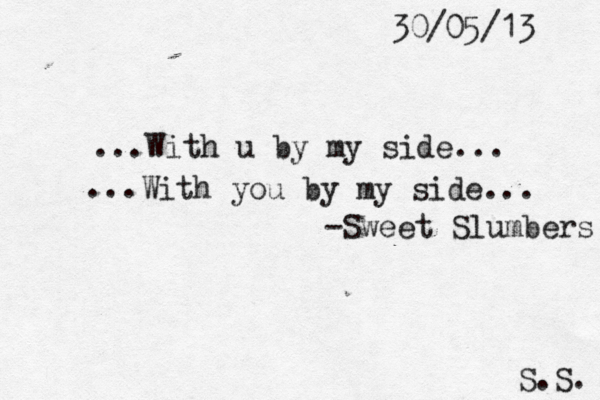 30/05/13
...With u by my side...
...With you by my side...
-Sweet Slumbers
S.S.